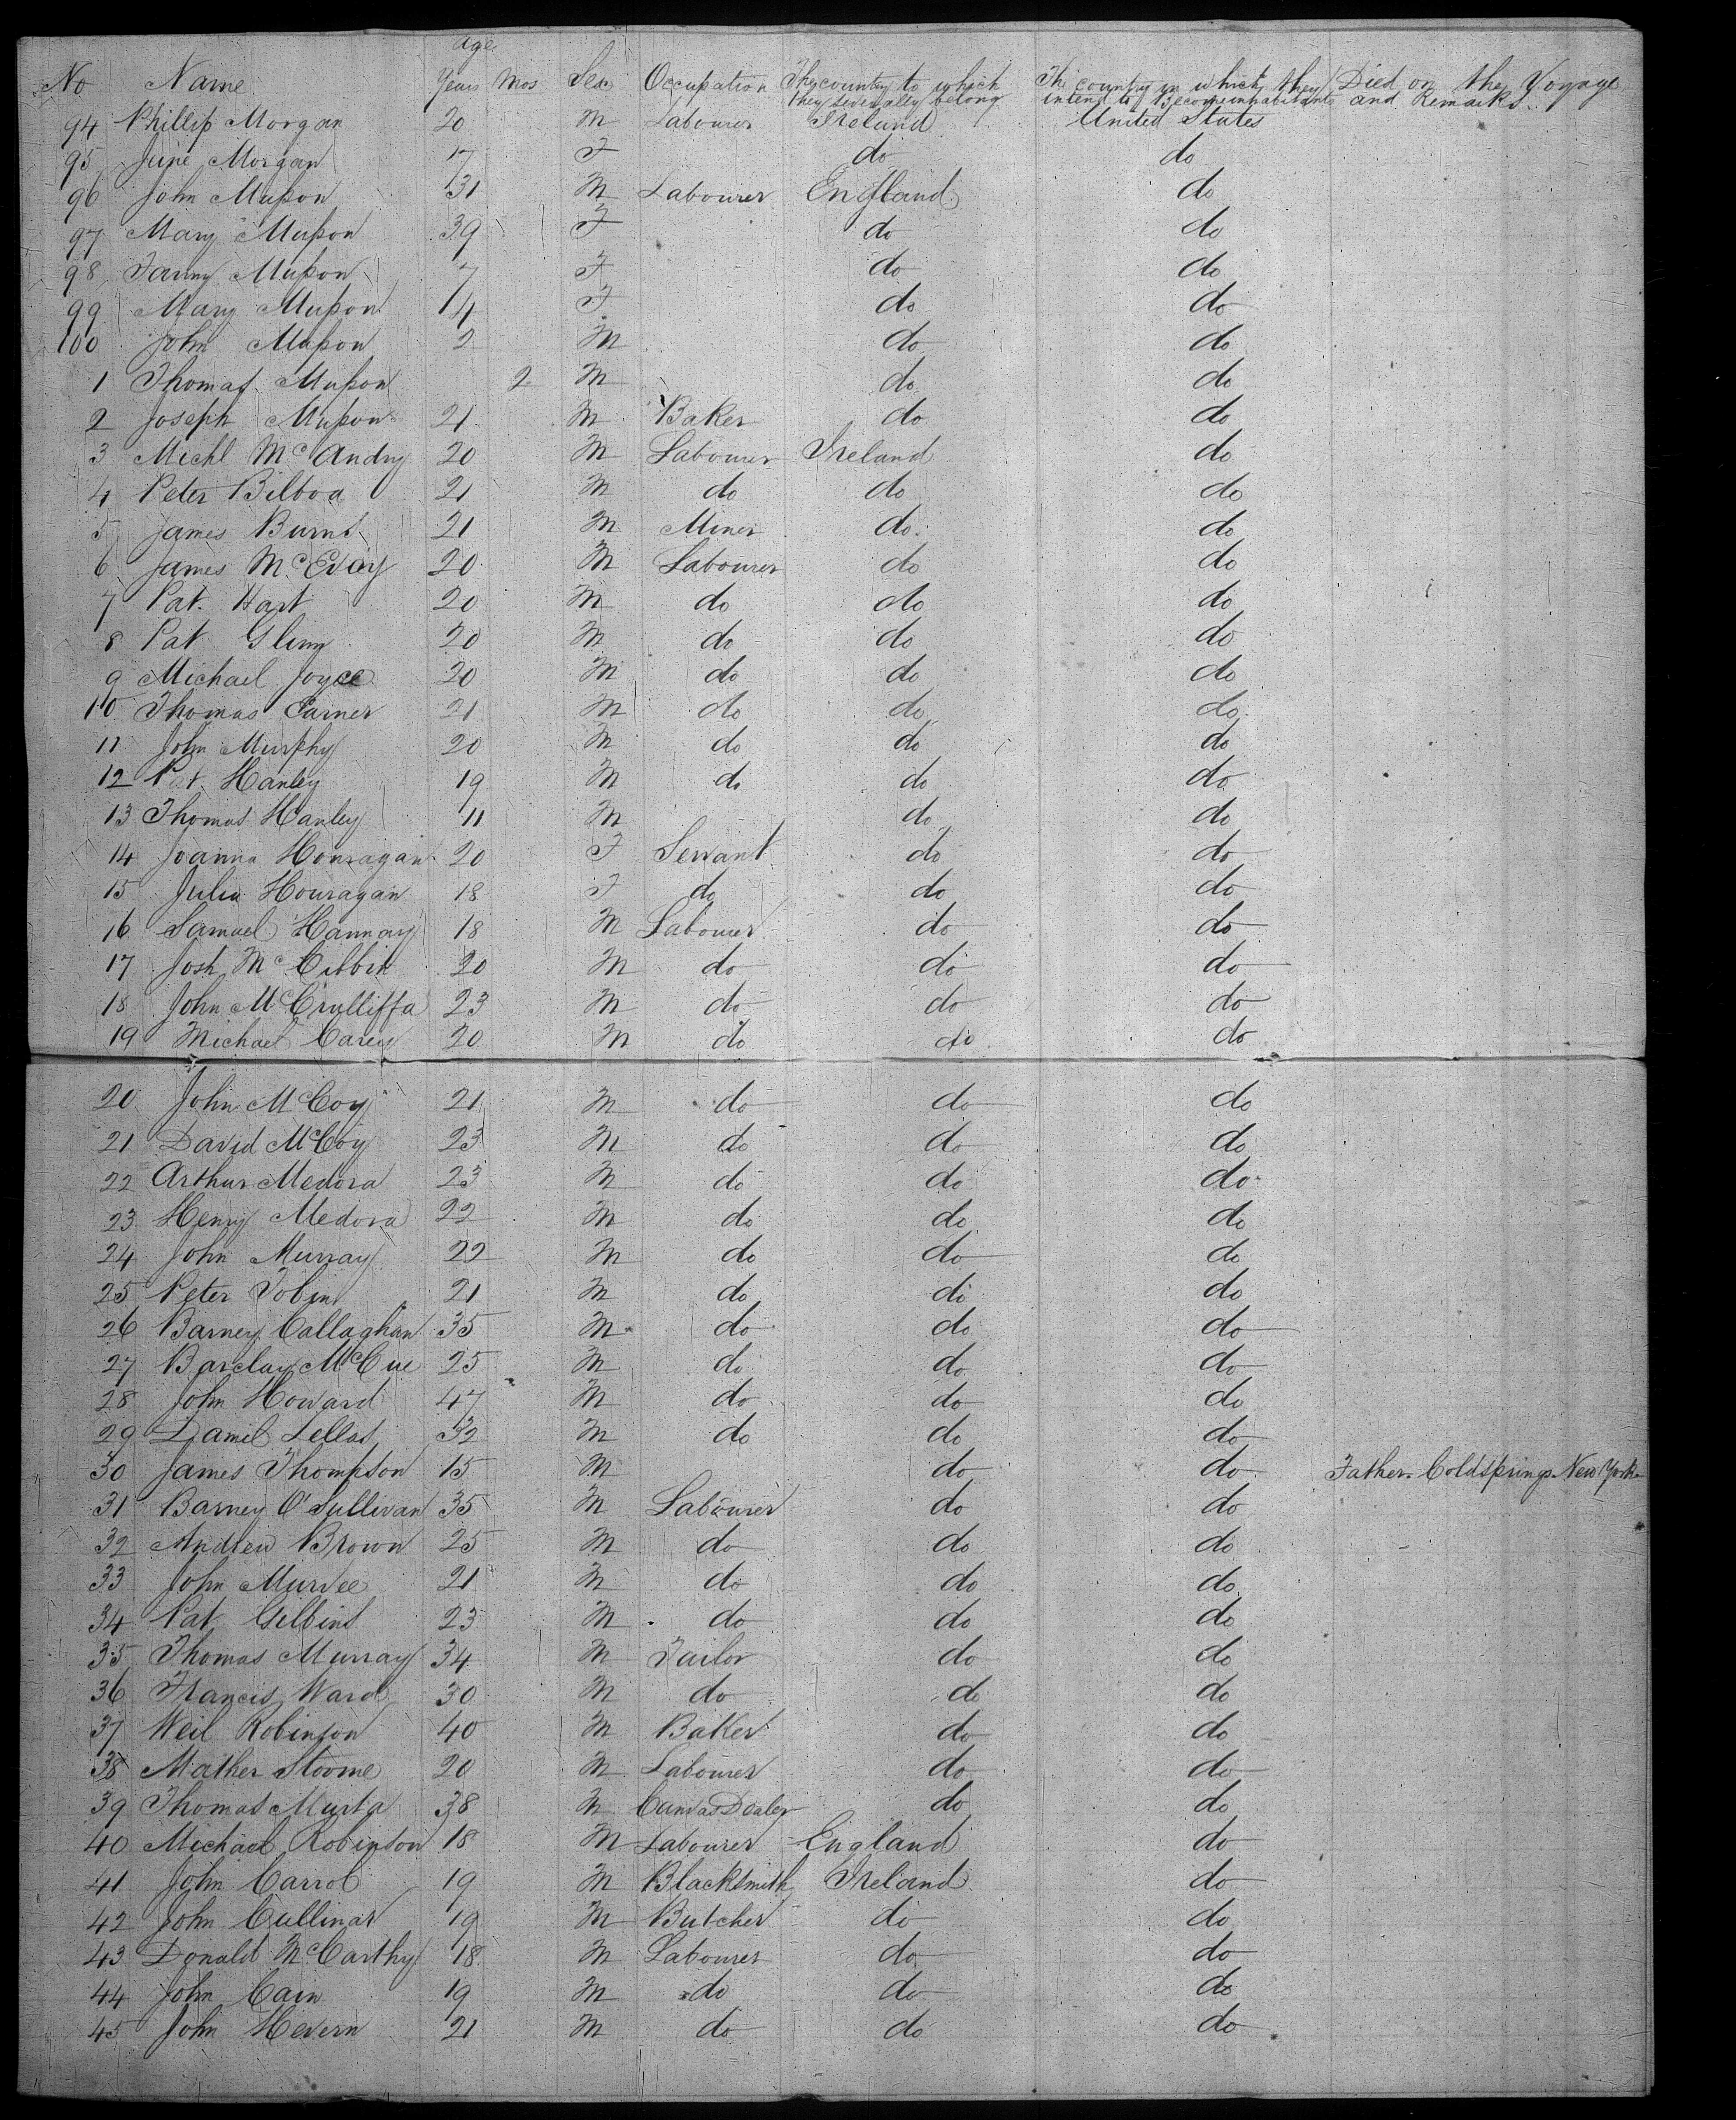 Age
No Name Years Mos Sex Occupation The country to which they severally belong The country in which they intend to Become inhabitants Died on the Voyage and Remarks
94 Phillip Morgan 20 M Labourer Ireland United States
95 June Morgan 17 F do do
96 John Musson 31 M Labourer England do
97 Mary Musson 39 F do do
98 Fanny Musson 7 F do do
99 Mary Musson 14 F do do
100 John Musson 2 M do do
1 Thomas Musson 2 M do do
2 Joseph Musson 21 M Baker do do
3 Michl McAndry 20 M Labourer Ireland do
4 Peter Bilboa 21 M do do do
5 James Burns 21 M Miner do do
6 James McEvoy 20 M Labourer do do
7 Pat. Hart 20 M do do do
8 Pat 20 M do do do
9 Michael Joyce 20 M do do do
10 Thomas Carner 21 M do do do
11 John Murphy 20 M do do do
12 Pat. Hanley 19 M do do do
13 Thomas Hanley 11 M do do
14 Joanna Houragan 20 F Servant do do
15 Julia Houragan 18 F do do do
16 Samuel Hannay 18 M Labourer do do
17 Josh McCibbin 20 M do do do
18 John 23 M do do do
19 Michael Carey 20 M do do do
20 John McCoy 21 M do do do
21 David McCoy 23 M do do do
22 Arthur Medora 23 M do do do
23 Henry Medora 22 M do do do
24 John Murray 22 M do do do
25 Peter Tobin 21 M do do do
26 Barney Callaghan 35 M do do do
27 Barclay McCue 25 M do do do
28 John Howard 47 M do do do
29 Daniel Lellas 32 M do do do
30 James Thompson 15 M do do Father. Coldsprings New York
31 Barney O'Sullivan 35 M Labourer do do
32 Andrew Brown 25 M do do do
33 John Murvee 21 M do do do
34 Pat Gibbins 23 M do do do
35 Thomas Murray 34 M Tailor do do
36 Francis Ward 30 M do do do
37 Neil Robinson 40 M Baker do do
38 Mather Stoome 20 M Labourer do do
39 Thomas Murta 38 M Canvas Dealer do do
40 Michael Robinson 18 M Labourer England do
41 John Carrol 19 M Blacksmith Ireland do
42 John Cullinar 19 M Butcher do do
43 Donald McCarthy 18 M Labourer do do
44 John Cain 19 M do do do
45 John Hevern 21 M do do do